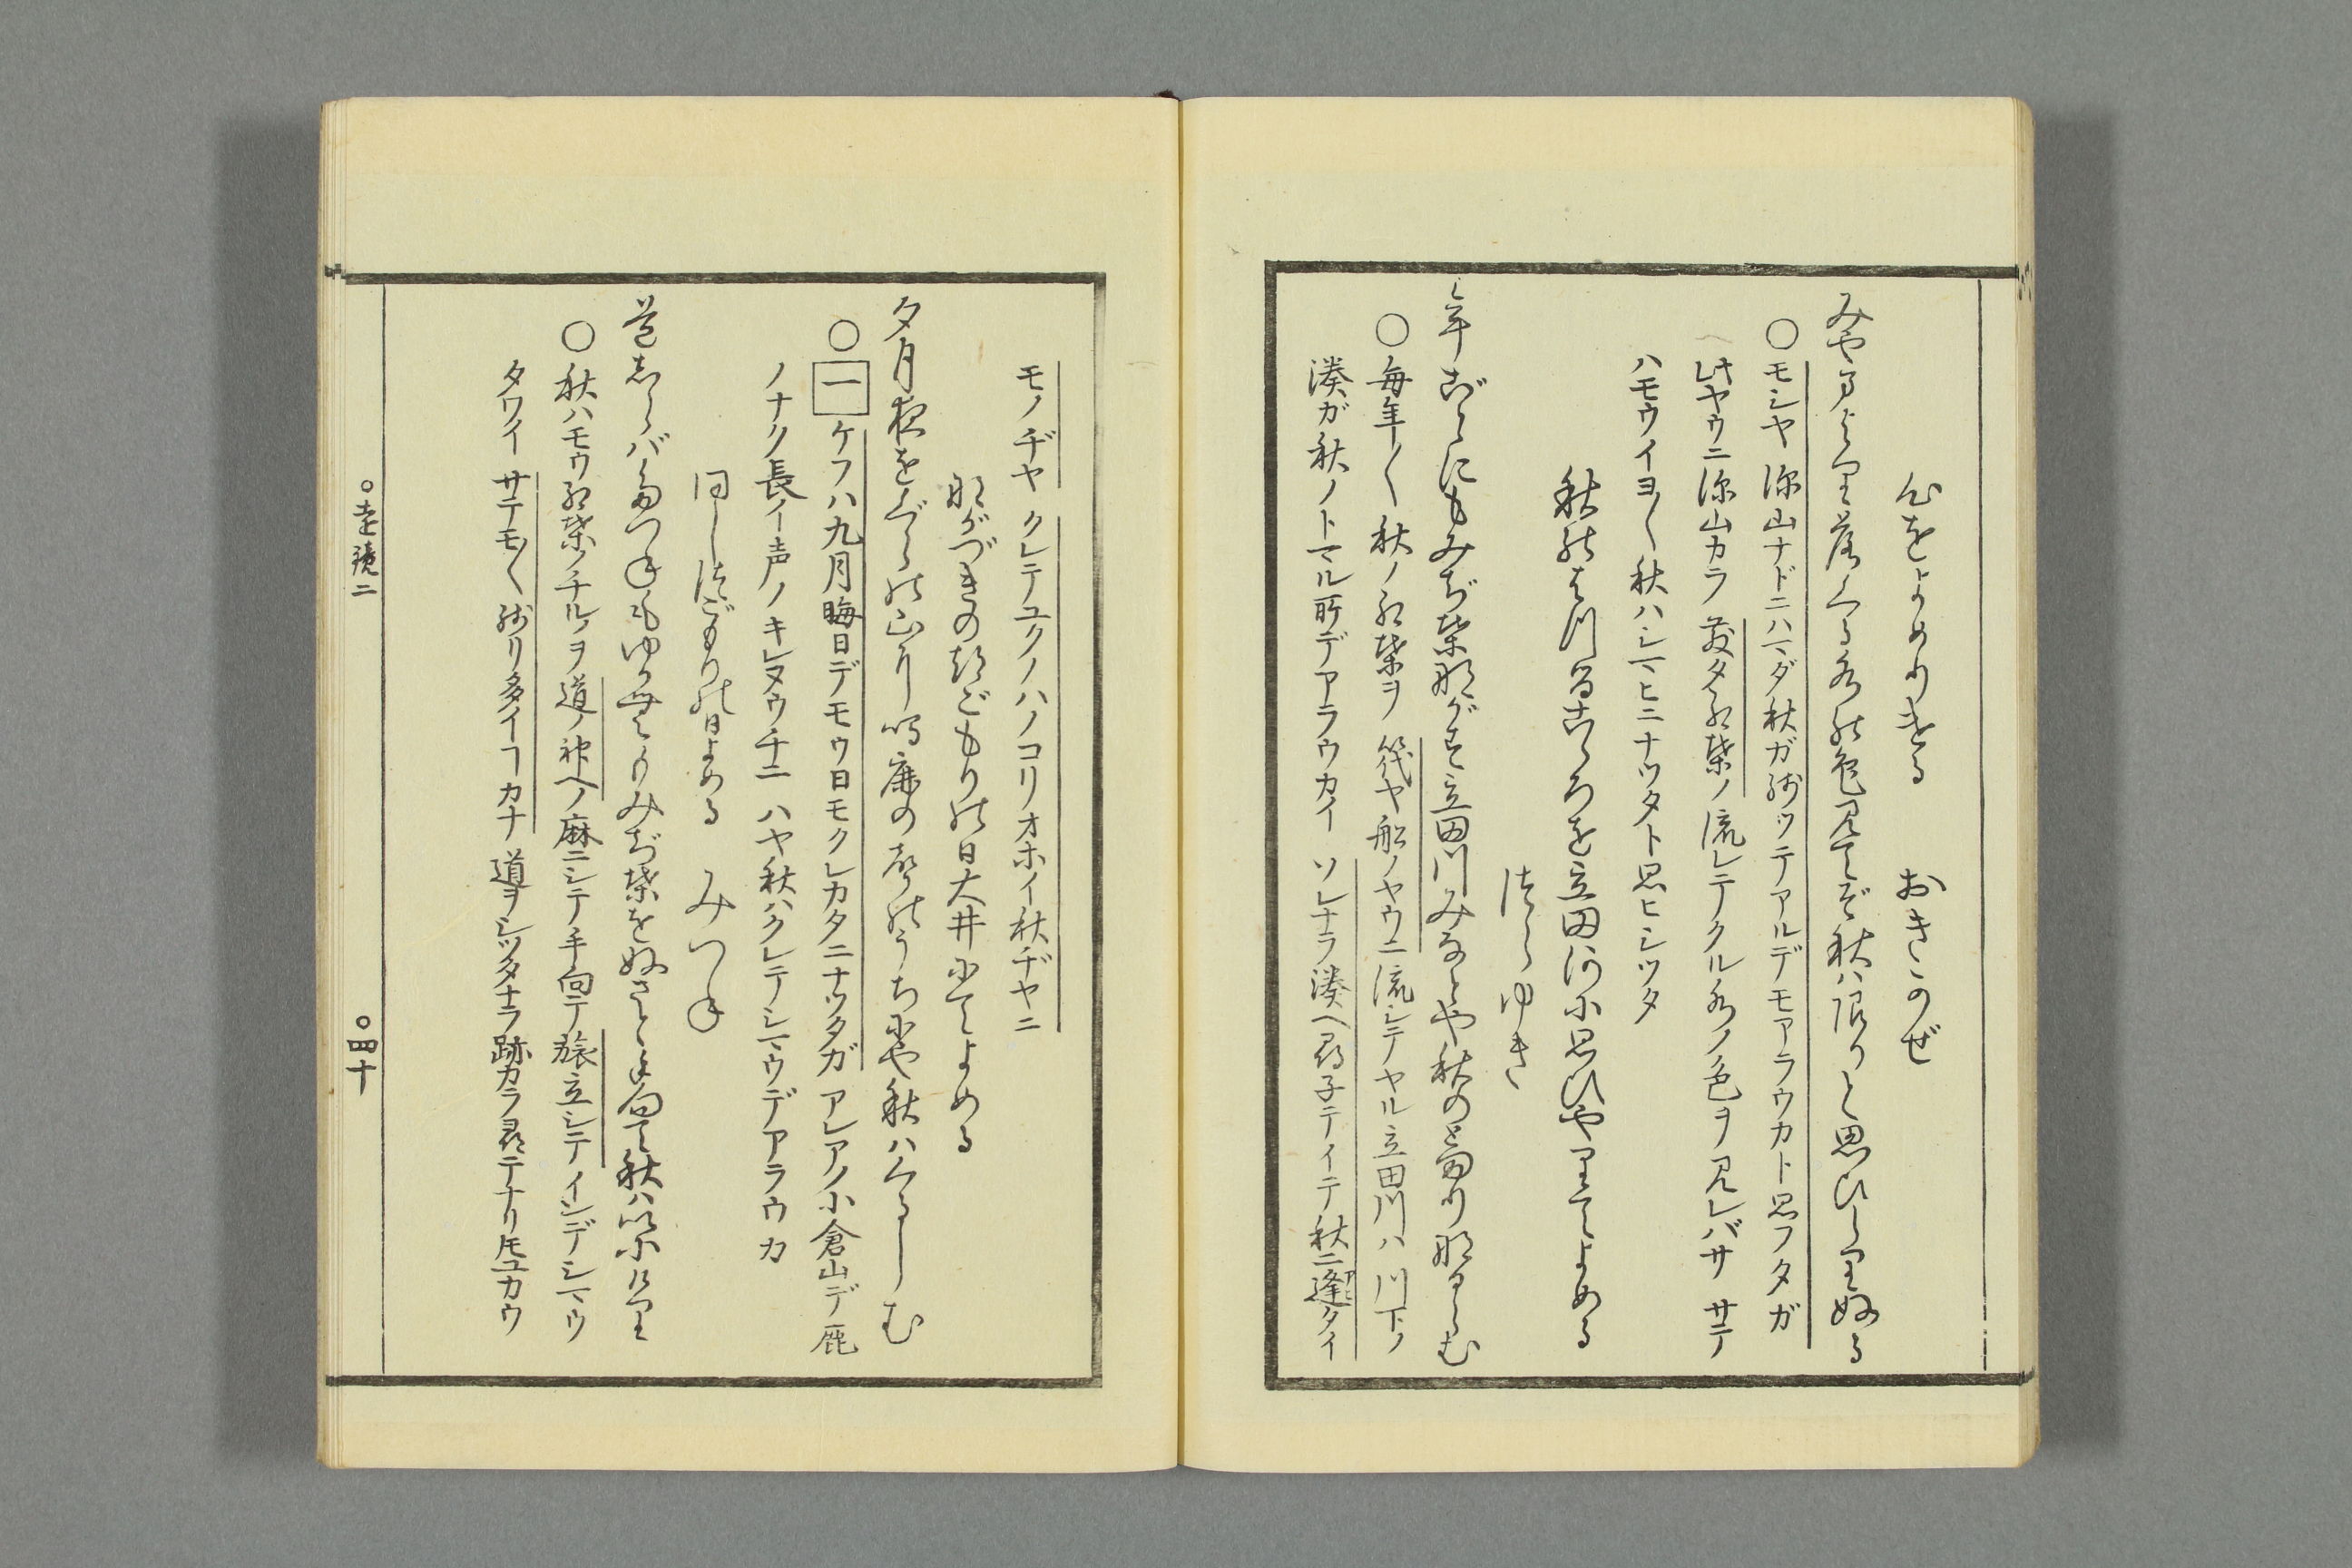 心をよめりける　おきかぜ
みやまより落くる水の色見てぞ秋ハ限りと思ひしりぬる
○モシヤ深山ナドニハマダ秋ガ残ツテアルデモアラウカト思フタガ
此ヤウニ深山カラ散タ紅葉ノ流レテクル水ノ色ヲ見レバサ サテ
ハモウイヨ〱秋ハシマヒニナツタト思ヒシツタ
秋のはつるこゝろを立田河に思ひやりてよめる
つらゆき
年ごとにもみぢ葉ながす立田川みなとや秋のとまり成らむ
○毎年〱秋ノ紅葉ヲ 筏ヤ船ノヤウニ流シテヤル立田川ハ 川下ノ
湊ガ秋ノトマル所デアラウカイ ソレナラ湊ヘ尋子テイテ秋ニ逢タイ
モノヂヤ クレテユクノハノコリオホイ秋ヂヤニ
なが月のつごもりの日大井にてよめる
夕月夜をぐらの山に鳴鹿の声のうちにや秋ハくるらむ
○一ケフハ九月晦日デモウ日モクレカタニナツタガ アレアノ小倉山デ鹿
ノナク長イ声ノキレヌウチニ ハヤ秋ハクレテシマウデアラウカ
同しつごもりの日よめる　みつね
道しらバたづねもゆかむもみぢ葉をぬさと手向て秋ハいにけり
○秋ハモウ紅葉ノチルヲ道ノ神ヘノ麻ニシテ手向テ 旅立シテインデシマウ
タワイ サテモ〱残リ多イヿカナ 道ヲシツタナラ跡カラ尋テナリトモユカウ
○遠鏡二　○四十